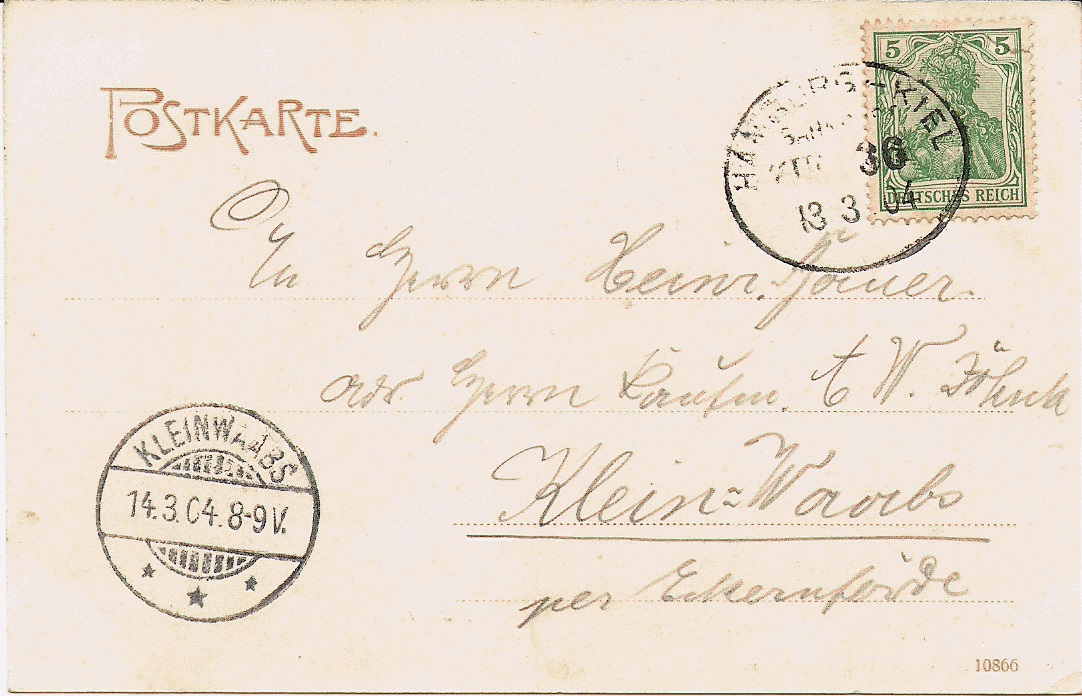 POSTKARTE.
5 5
DEUTSCHES REICH
HAMBURG-KIEL
BAHNPOST
ZUG 36
13 3 04
An Herrn Heinr.
adr. Herrn Kaufm. W.
Klein=Waabs
per Eckernförde
KLEINWAABS
14.3.04.8-9V.
10866